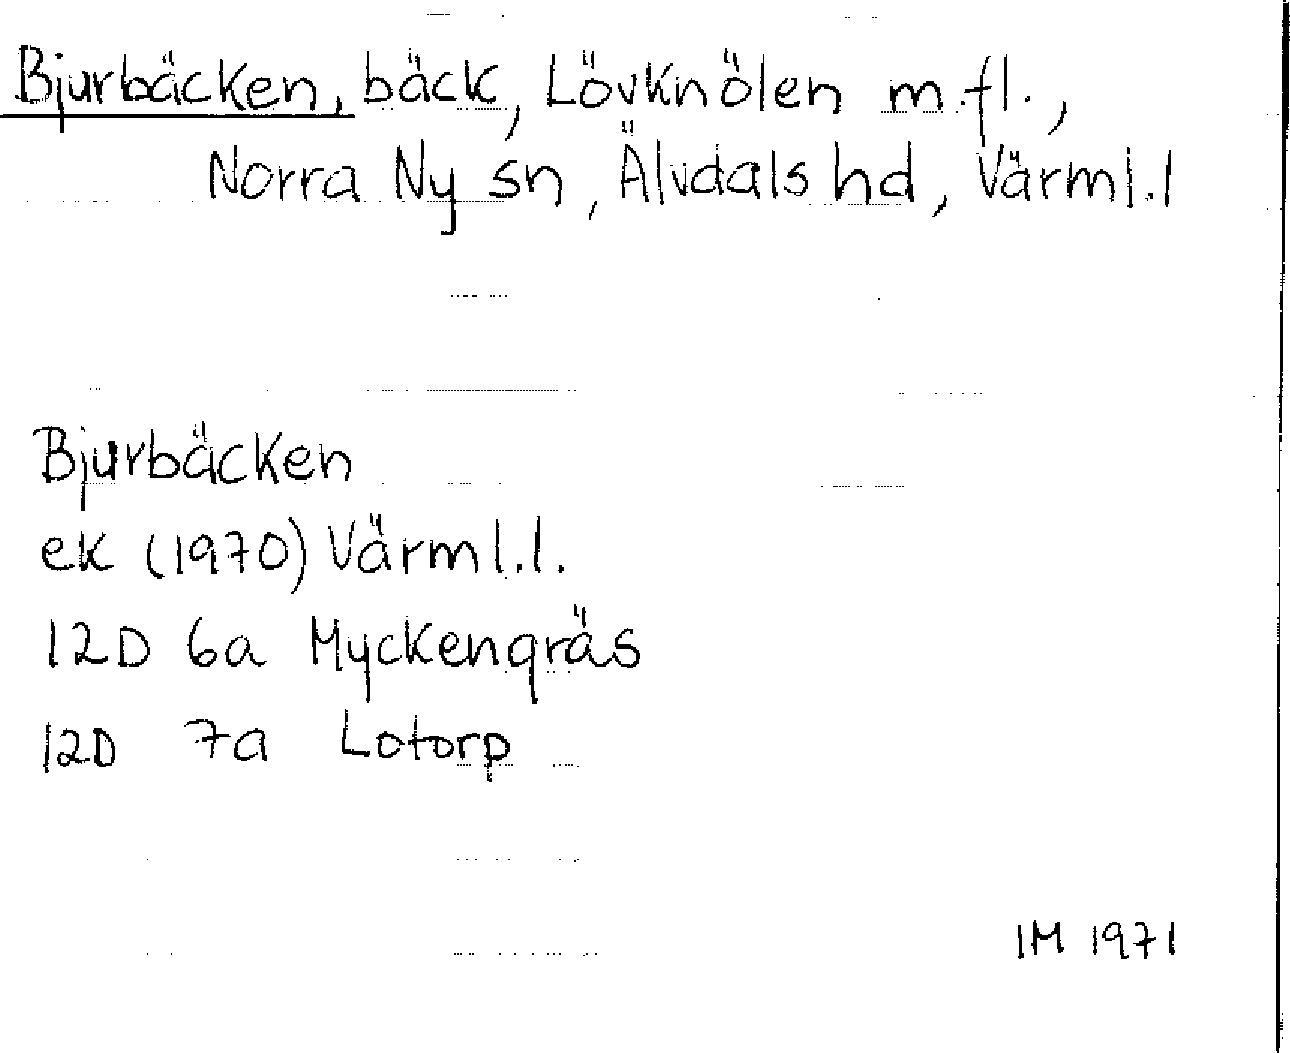 Bjurbäcken, bäck, Lövknölen m.fl.,
Norra Ny sn, Älvdals hd, Värml.l
Bjurbäcken
ek (1970) Värml.l.
12D 6a Myckengräs
12D 7a Lotorp
IM 1971